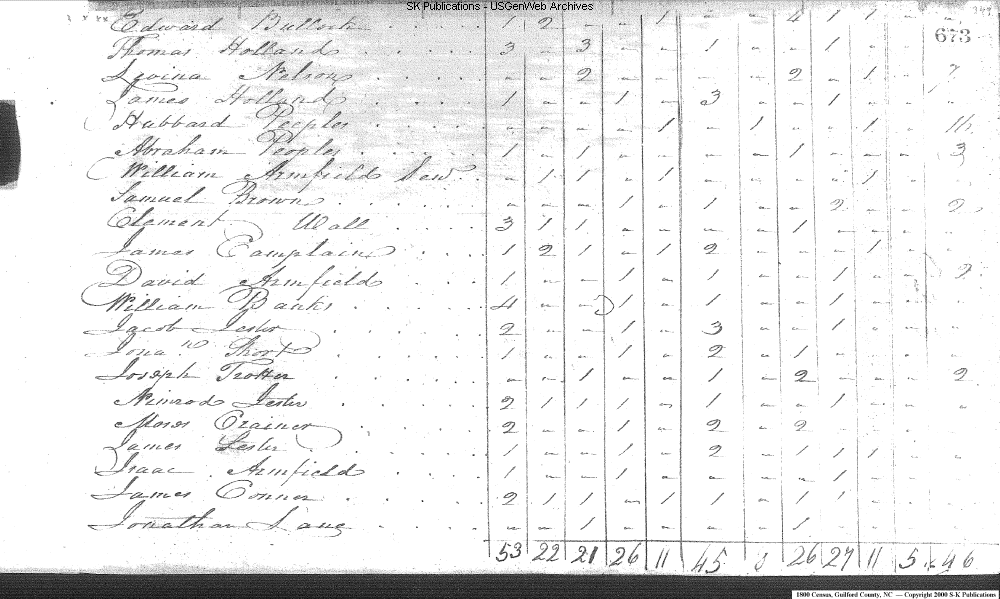 SK Publications - USGenWeb Archives
673
Edward Bullock 1 2 - - 1 - - 4 1 1 - -
Thomas Holland 3 - 3 - - 1 - - 1 - - -
Levina Nelson - - 2 - - - - 2 - 1 - 7
James Holland 1 - - 1 - 3 - - 1 - - -
Hubbard Peeples - - - - 1 - 1 - - 1 - 16
Abraham Peoples 1 - 1 - - - - 1 - - - 3
William Armfield Sen - 1 1 - 1 - - - - 1 - -
Samuel Brown - - - 1 - 1 - - 2 - - 2
Clement Wall 3 1 1 - - - - 1 - - - -
James Camplain 1 2 1 - 1 2 - - - 1 - -
David Armfield 1 - - 1 - 1 - - 1 - - 2
William Banks 4 - - 1 - 1 - - 1 - - -
Jacob Lester 2 - - 1 - 3 - - 1 - - -
Jona Short 1 - - 1 - 2 - 1 - - - -
Joseph Trotter - - 1 - - 1 - 2 - - - 2
Nimrod Lester 2 1 1 1 - 1 - - 1 - - -
Moses Crainer 2 - - 1 - 2 - 2 - - - -
James Lester 1 - - 1 - 2 - 1 1 1 - -
Isaac Armfield 1 - - 1 - - - - 1 - - -
James Conner 2 1 1 - 1 1 1 - 1 1 - -
Jonathan Lane - - 1 - - - - 1 - - - -
53 22 21 26 11 45 26 27 11 5 46
1800 Census, Guilford County, NC — Copyright 2000 S-K Publications